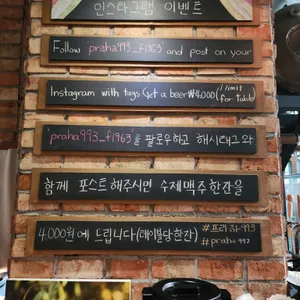 인스타그램 이벤트
Follow praha993_f1963 and post on your
Instagram with tags. Get a beer ₩4,000 (1 limit for table)
praha993_f1963 을 팔로우하고 해시태그와
함께 포스트 해주시면 수제맥주 한잔을
4,000원에 드립니다 (테이블당 한잔) #프라하993
#praha993